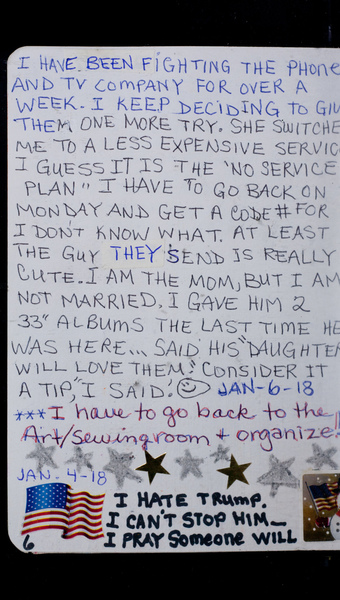 I HAVE BEEN FIGHTING THE PHONE
AND TV COMPANY FOR OVER A
WEEK. I KEEP DECIDING TO GIV
THEM ONE MORE TRY. SHE SWITCHE
ME TO A LESS EXPENSIVE SERVIC
I GUESS IT IS THE "NO SERVICE
PLAN" I HAVE TO GO BACK ON
MONDAY AND GET A CODE # FOR
I DON'T KNOW WHAT. AT LEAST
THE GUY THEY SEND IS REALLY
CUTE. I AM THE MOM, BUT I AM
NOT MARRIED. I GAVE HIM 2
33" ALBUMS THE LAST TIME HE
WAS HERE... SAID HIS "DAUGHTER
WILL LOVE THEM." CONSIDER IT
A TIP," I SAID! JAN-6-18
***I have to go back to the
Art/sewingroom + organize!
JAN-4-18
I HATE TRUMP.
I CAN'T STOP HIM—
I PRAY SOMEONE WILL
6